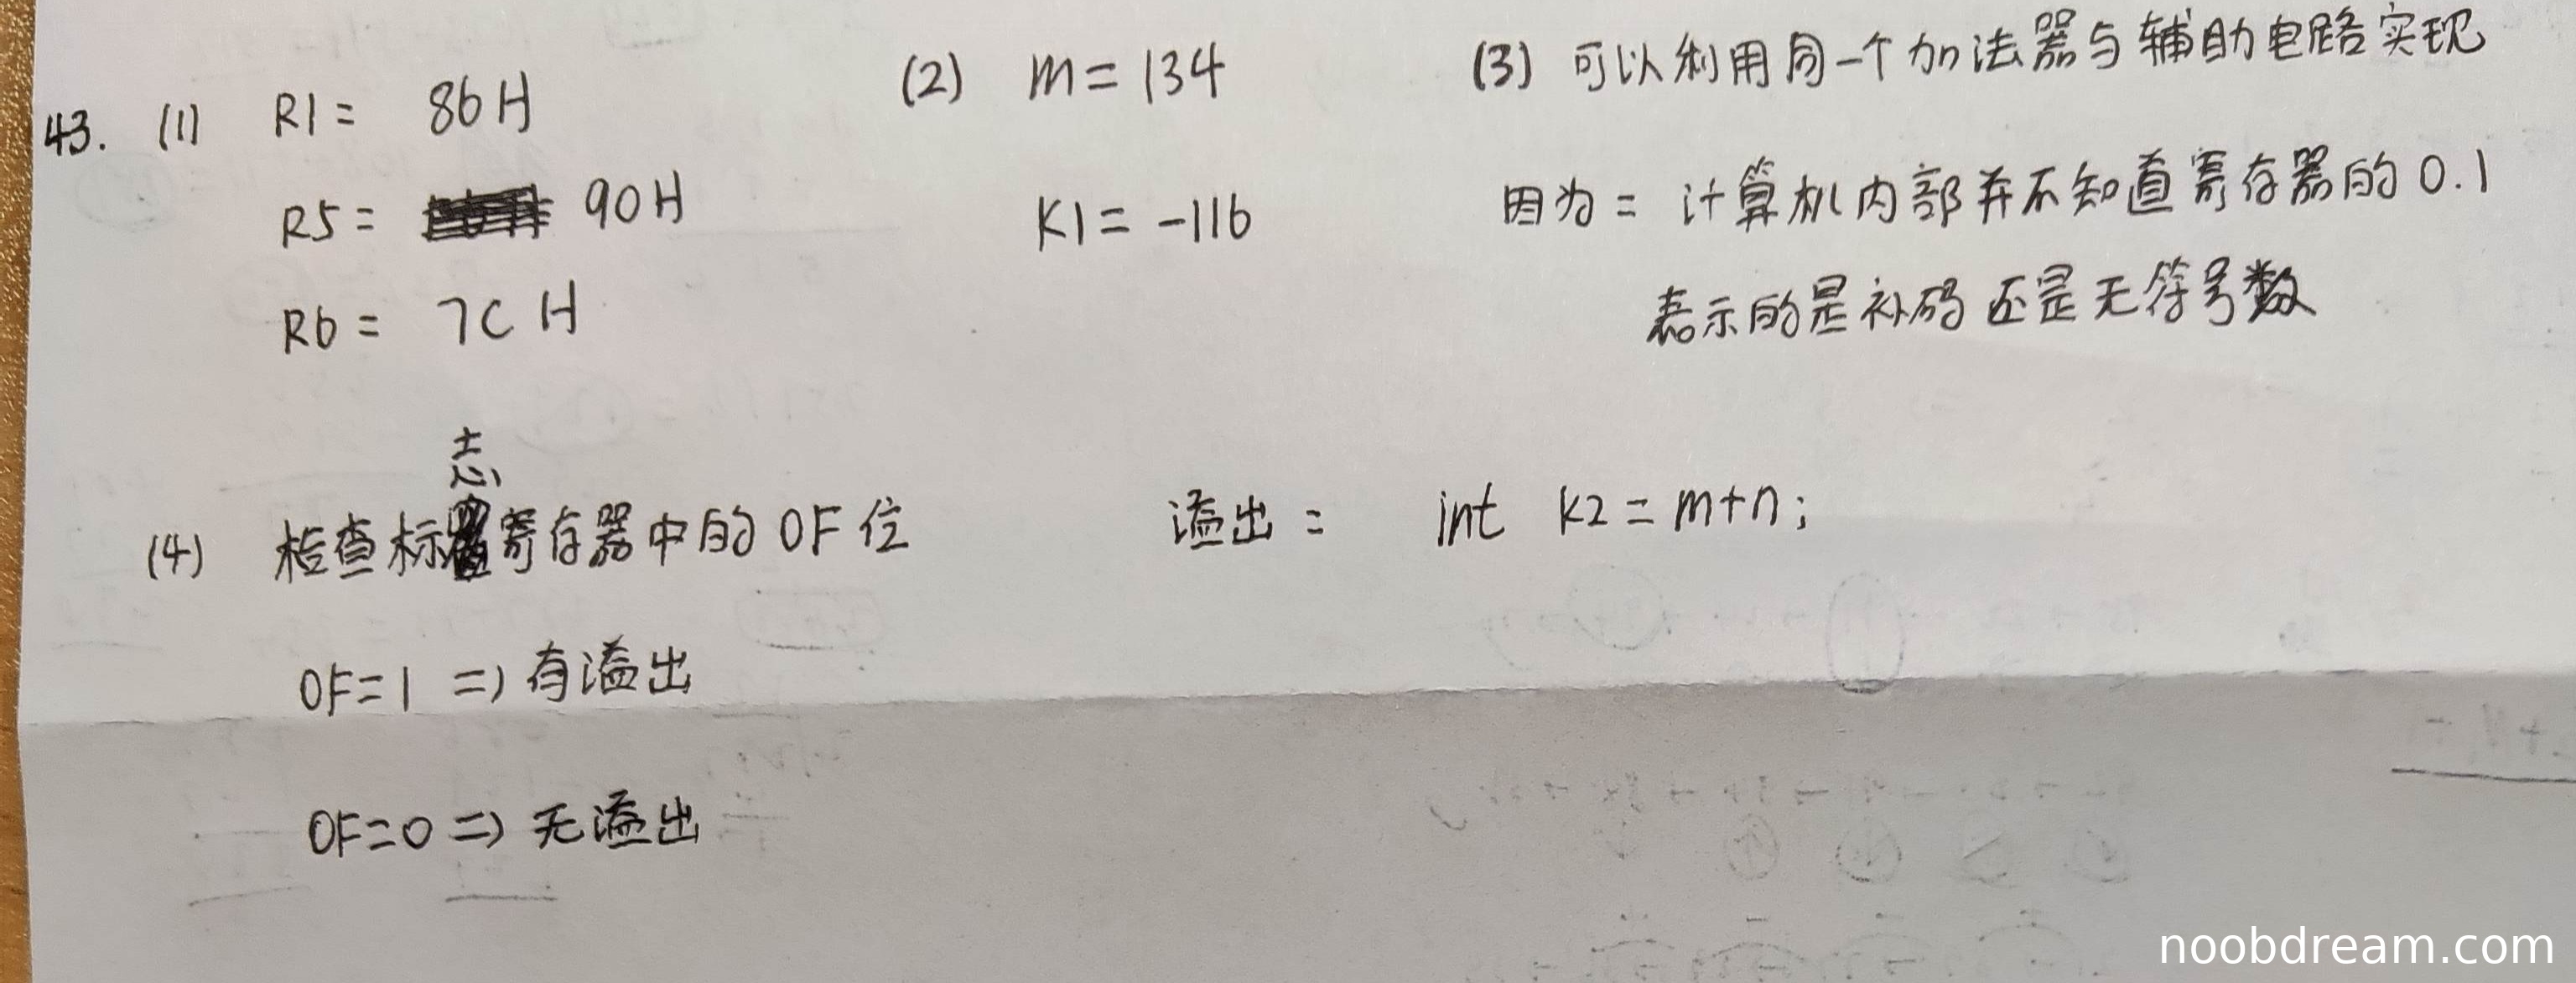 43. (1) R1 = 86H
R5 = 90H
R6 = 7CH
(2) m = 134
K1 = -116
(3) 可以利用同一个加法器与辅助电路实现
因为 = 计算机内部并不知道寄存器的0.1
表示的是补码还是无符号数
(4) 检查标志寄存器中的OF位
OF=1 => 有溢出
OF=0 => 无溢出
溢出 = int K2 = m+n;
noobdream.com